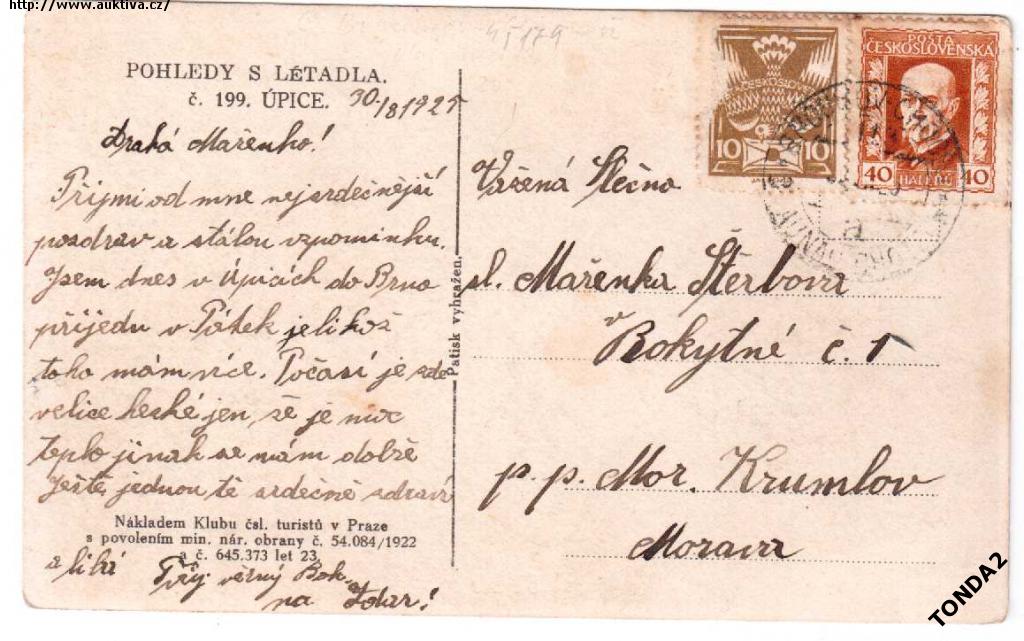 http://www.auktiva.cz/
POHLEDY S LETADLA.
č. 199. ÚPICE. 30/8 1925
Drahá Mařenko!
Přijmi od mne nejsrdečnější
pozdrav a stálou vzpomínku.
Jsem dnes v Úpicách do Brna
přijedu v Pátek jelikož
toho mám více. Počasí je zde
velice hezké jen že je moc
teplo jinak se nám dobře
Ještě jednou tě srdečně zdraví
Nákladem Klubu čsl. turistů v Praze
s povolením min. nár. obrany č. 54.084/1922
a č. 645.373 let 23.
a líbá Tvůj věrný
na Zdar!
Patisk vyhražen.
ČESKOSLOVENSKO
10 10
POŠTA
ČESKOSLOVENSKÁ
40 HALÉŘŮ 40
a
Vážená Slečno
sl. Mařenka Štěrbova
v Rokytné č. 1
p. p. Mor. Krumlov
Morava
TONDA2